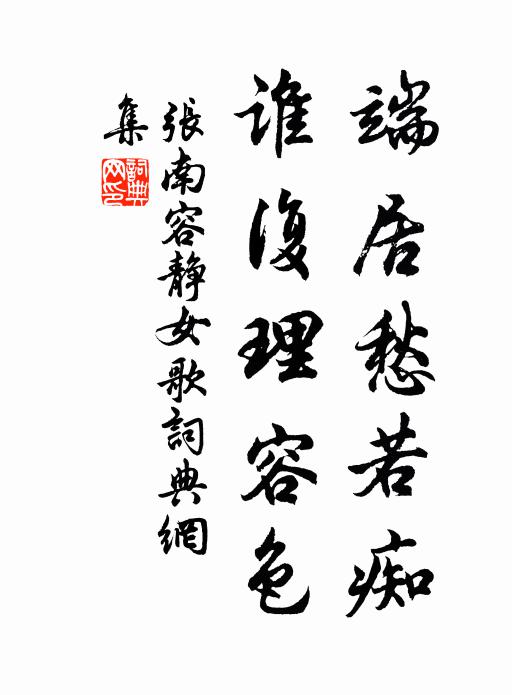 端居愁若痴
誰復理容色
張南容靜女歌詞典網
集
詞典网印